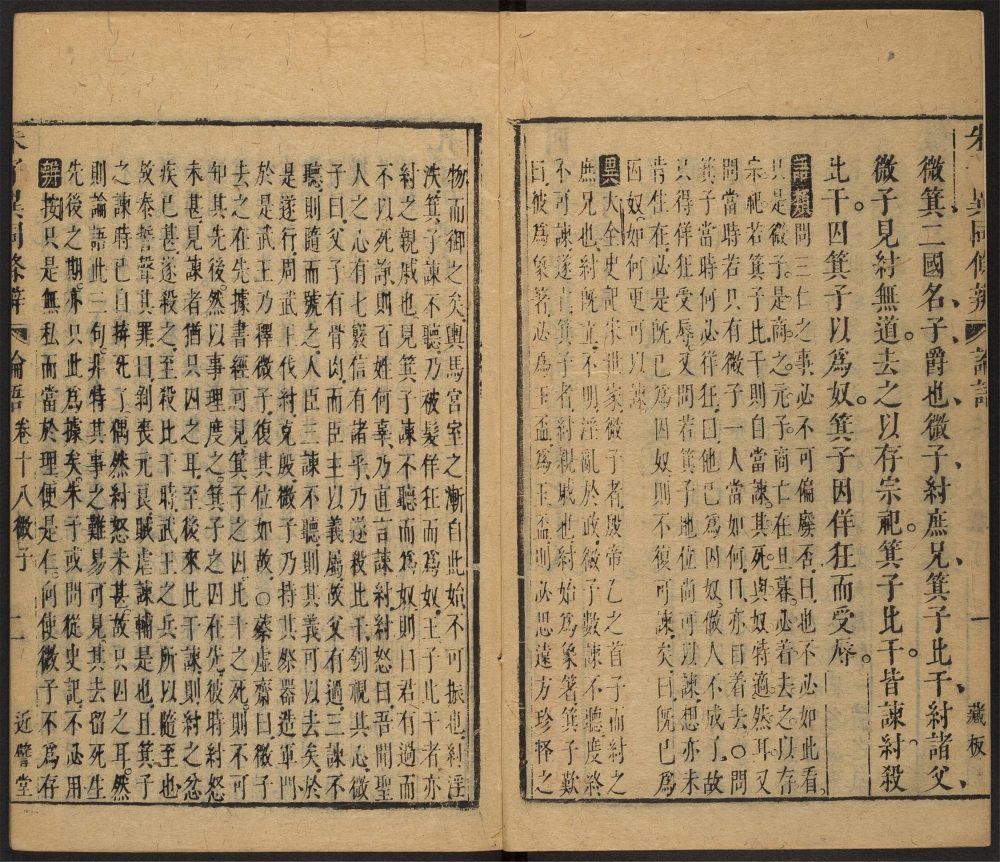 朱子異同條辨 論語 一 藏板
微箕二國名子爵也微子紂庶兄箕子比干紂諸父
微子見紂無道去之以存宗祀箕子比干皆諫紂殺
比干囚箕子以為奴箕子因佯狂而受辱
語類問三仁之事必不可偏廢否曰也不必如此看
只是微子是商之元子商亡在旦暮必着去之以存
宗祀若箕子比干則自當諫其死與奴特適然耳又
問當時若只有微子一人當如何曰亦自着去○問
箕子當時何必佯狂曰他已為囚奴做人不成了故
只得佯狂受辱又問若箕子地位尚可以諫想亦未
肯住在必是既已為囚奴則不復可諫矣曰既已為
囚奴如何更可以諫
異大全史記宋世家微子者殷帝乙之首子而紂之
庶兄也紂既立不明淫亂於政微子數諫不聽度終
不可諫遂去箕子者紂親戚也紂始為象箸箕子歎
曰彼為象箸必為玉盃為玉盃則必思遠方珍怪之
物而御之矣輿馬宮室之漸自此始不可振也紂淫
泆箕子諫不聽乃被髮佯狂而為奴王子比干者亦
紂之親戚也見箕子諫不聽而為奴則曰君有過而
不以死諍則百姓何辜乃直言諫紂紂怒曰吾聞聖
人之心有七竅信有諸乎乃遂殺比干刳視其心微
子曰父子有骨肉而臣主以義屬故父有過三諫不
聽則隨而號之人臣三諫不聽則其義可以去矣於
是遂行周武王伐紂克殷微子乃持其祭器造軍門
於是武王乃釋微子復其位如故○蔡虛齋曰微子
去之其在先據書經可見箕子之囚比干之死則不可
知其先後然以事理度之箕子之囚在先彼時紂怒
未甚見諫者猶只囚之耳至後來比干諫則紂之忿
疾已甚遂殺之至殺比干時武王之兵所以隨至也
故泰誓聲其罪曰剝喪元良賊虐諫輔是也且箕子
之諫時已自拚死了偶然紂怒未甚故只囚之耳然
則論語此三句非特其事之難易可見其去留死生
先後之期亦只此為據矣朱子或問從史記不必用
辨按只是無私而當於理便是仁向使微子不為存
朱子異同條辨 論語 卷十八微子 二 近譬堂